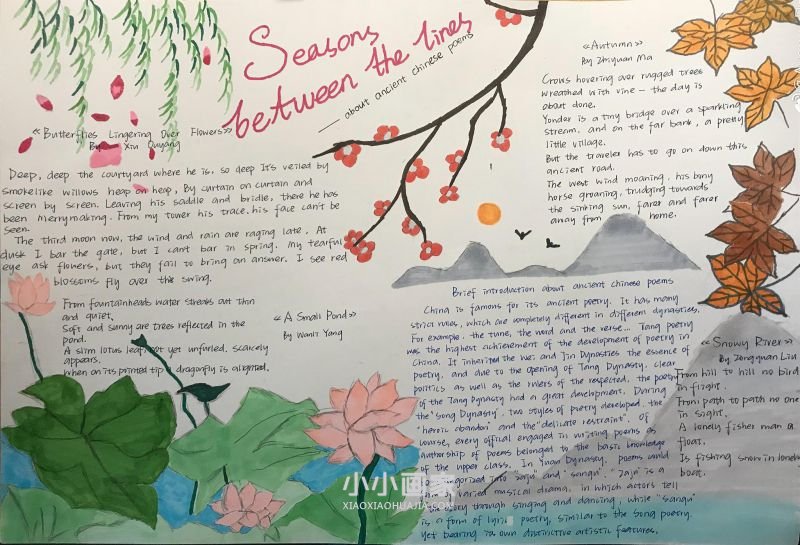 Seasons
between the lines
— about ancient chinese poems
<<Butterflies Lingering Over Flowers>>
By Xiu Ouyang
Deep, deep the courtyard where he is, so deep It's veiled by
smokelike willows heap on heap, By curtain on curtain and
screen by screen. Leaving his saddle and bridle, there he has
been merrymaking. From my tower his trace, his face can't be
seen.
The third moon now, the wind and rain are raging late, At
dusk I bar the gate, but I can't bar in spring. My tearful
eye ask flowers, but they fail to bring an answer. I see red
blossoms fly over the swing.
From fountainheads water streaks out thin
and quiet,
Soft and sunny are trees reflected in the
pond.
A slim lotus leaf, not yet unfurled, scarcely
appears,
When on its printed tip a dragonfly is alighted.
<<A Small Pond>>
By Wanli Yang
<<Autumn>>
By Zhiyuan Ma
Crows hovering over rugged trees
wreathed with vine — the day is
about done.
Yonder is a tiny bridge over a sparkling
stream, and on the far bank, a pretty
little village.
But the traveler has to go on down this
ancient road.
The west wind moaning, his bony
horse groaning, trudging towards
the sinking sun, farer and farer
away from home.
Brief introduction about ancient chinese poems
China is famous for its ancient poetry. It has many
strict rules, which are completely different in different dynasties.
For example, the tune, the word and the verse... Tang poetry
was the highest achievement of the development of poetry in
China. It inherited the Wei and Jin Dynasties the essence of
poetry, and due to the opening of Tang Dynasty, clear
politics as well as the rulers of the respected, the poetry
of the Tang Dynasty had a great development. During
the "Song Dynasty", two styles of poetry developed, the
"heroic abandon" and the "delicate restraint". Of
course, every offical engaged in writing poems as
authorship of poems belonged to the basic knowledge
of the upper class. In Yuan Dynasty, poems could
be categorized into "zaju" and "sanqu". "Zaju" is a
varied musical drama, in which actors tell
story through singing and dancing, while "sanqu"
is a form of lyric poetry, similar to the Song poetry.
Yet bearing its own distinctive artistic features.
<<Snowy River>>
By Zongyuan Liu
From hill to hill no bird
in flight.
From path to path no one
in sight.
A lonely fisher man a
float.
Is fishing snow in lonely
boat.
小小画家
XIAOXIAOHUAJIA.COM